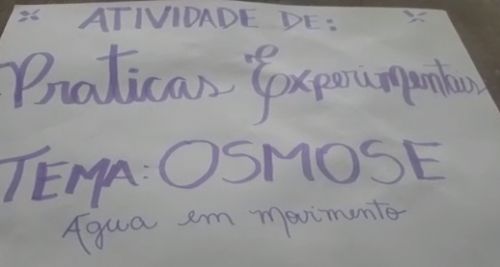 ATIVIDADE DE:
Praticas Experimentais
TEMA: OSMOSE
Água em movimento